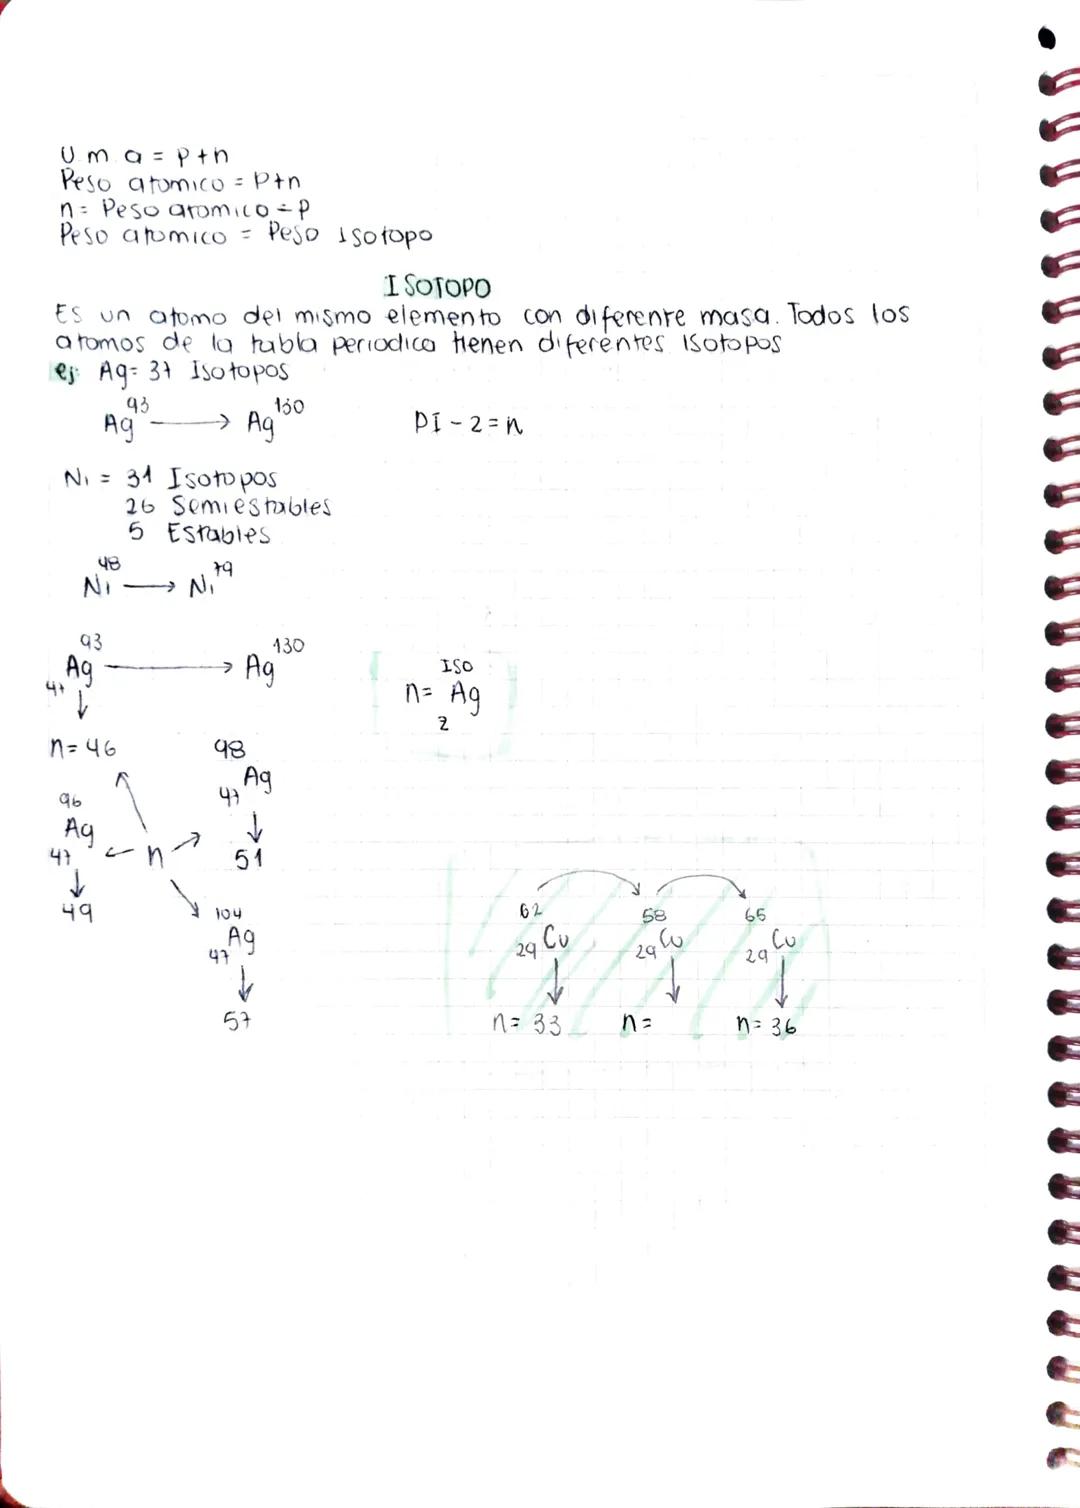 U.m.a = p+n
Peso atomico = p+n
n= Peso atomico - p
Peso atomico = Peso Isotopo
ISOTOPO
Es un atomo del mismo elemento con diferente masa. Todos los
atomos de la tabla periodica tienen diferentes Isotopos
ej: Ag= 37 Isotopos
Ag 93 → Ag 130
PI - Z = n
Ni = 31 Isotopos
26 Semiestables
5 Estables
Ni 48 → Ni 79
93 Ag 47 → Ag 130
ISO
n= Ag
Z
n=46
98
Ag
47
51
96
Ag
47
n
49
104
Ag
47
57
62 58 65
29 Cu 29 Cu 29 Cu
n= 33 n= n= 36